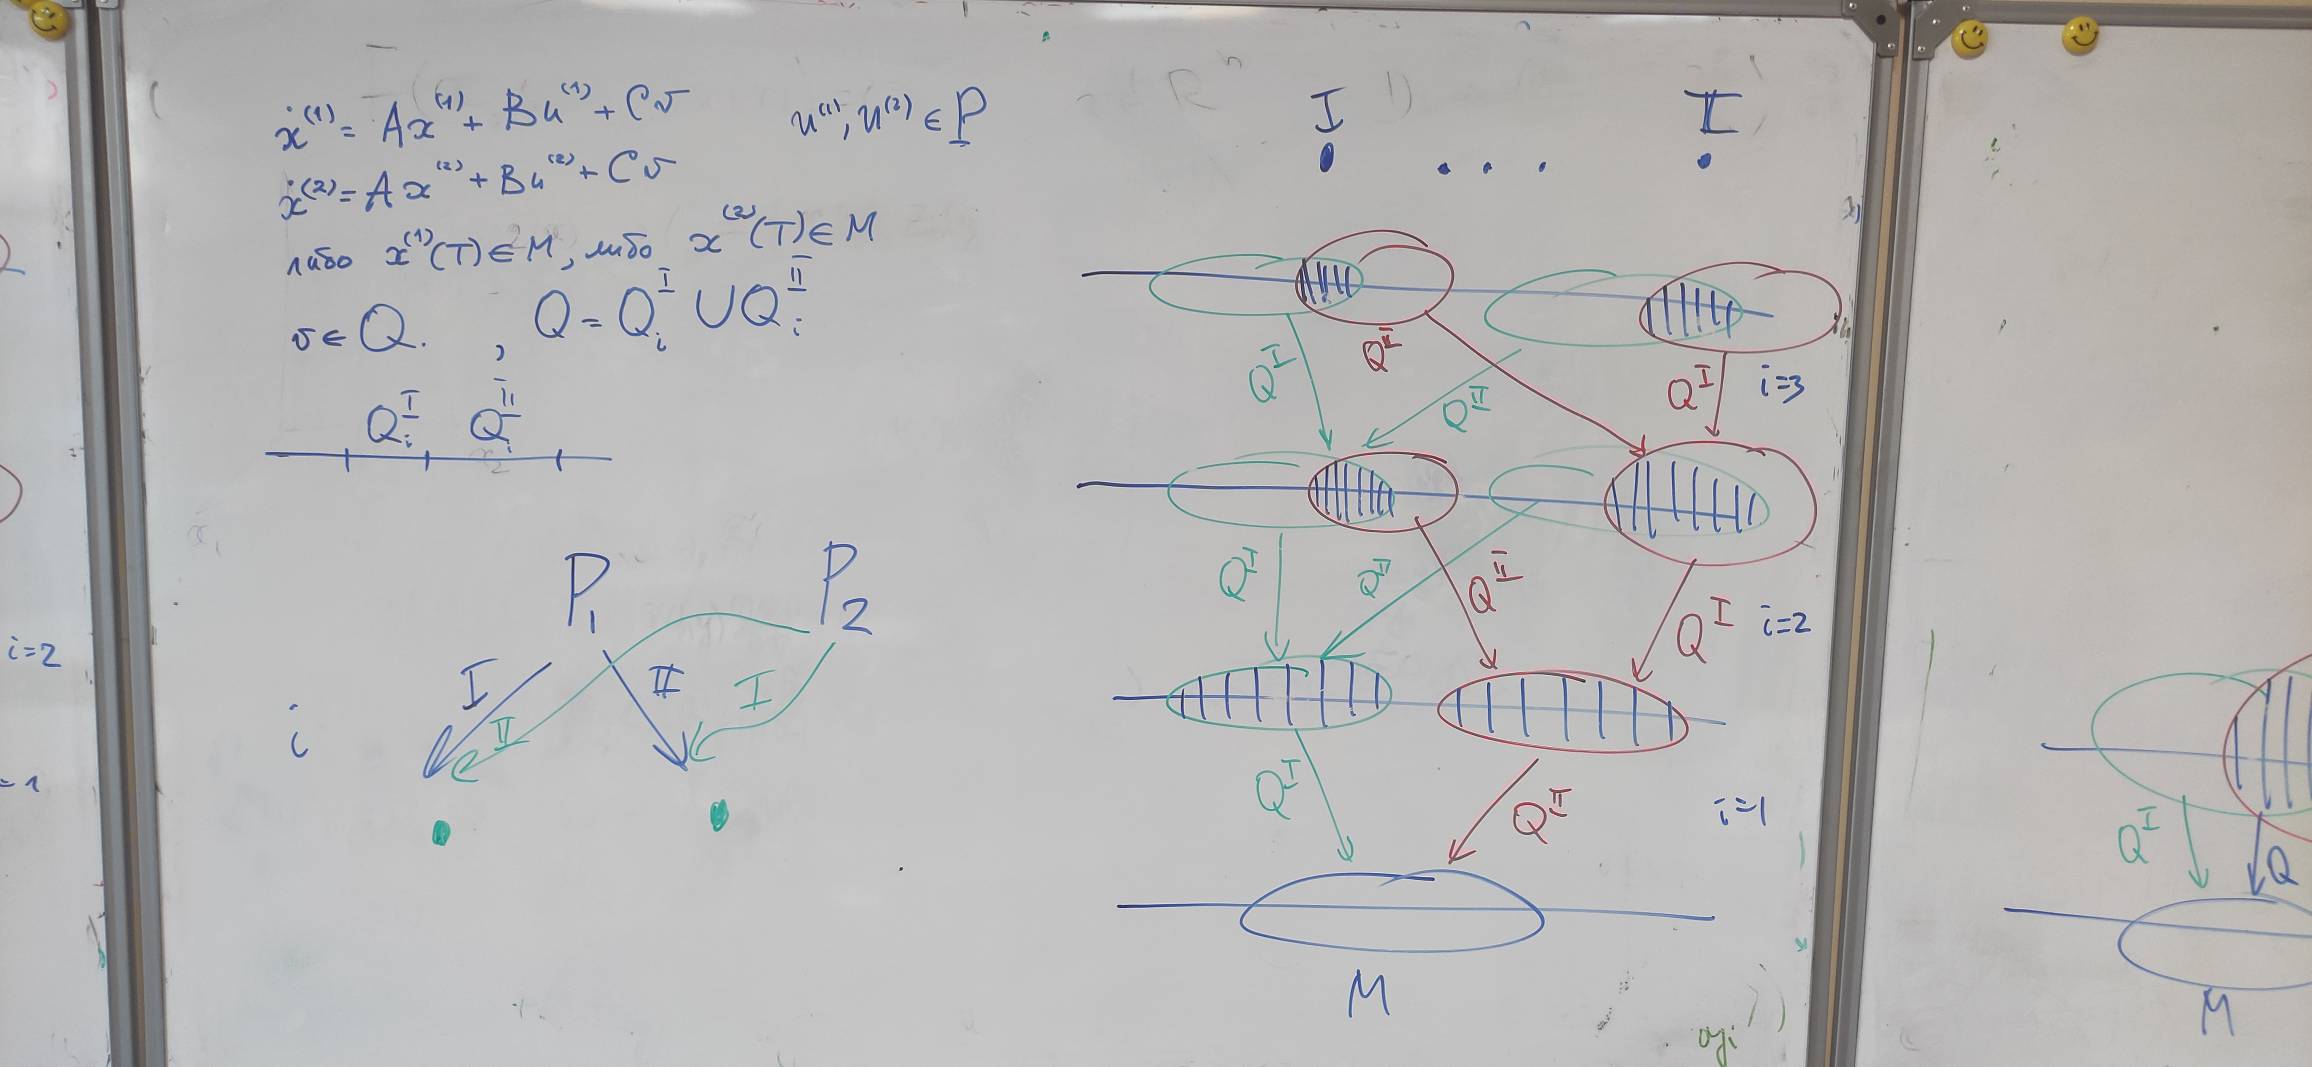 ẋ⁽¹⁾ = Ax⁽¹⁾ + Bu⁽¹⁾ + Cv   u⁽¹⁾, u⁽²⁾ ∈ P
ẋ⁽²⁾ = Ax⁽²⁾ + Bu⁽²⁾ + Cv
либо x⁽¹⁾(T) ∈ M, либо x⁽²⁾(T) ∈ M
v ∈ Q. , Q = Qᵢᴵ ∪ Qᵢᴵᴵ
Qᵢᴵ Qᵢᴵᴵ
P₁ P₂
I II I
II
i
I . . . II
Qᴵ Qᴵᴵ Qᴵᴵ Qᴵ i=3
Qᴵ Qᴵᴵ Qᴵᴵ Qᴵ i=2
Qᴵ Qᴵᴵ i=1
M
i=2
=1
Qᴵ Q
M